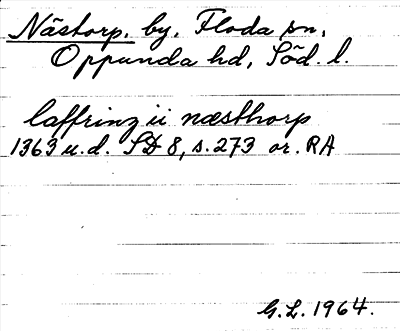 Nästorp. by. Floda sn,
Oppunda hd, Söd. l.
laffrinz ii næsthorp
1363 u.d. SD 8, s. 273 or. RA
G.L. 1964.